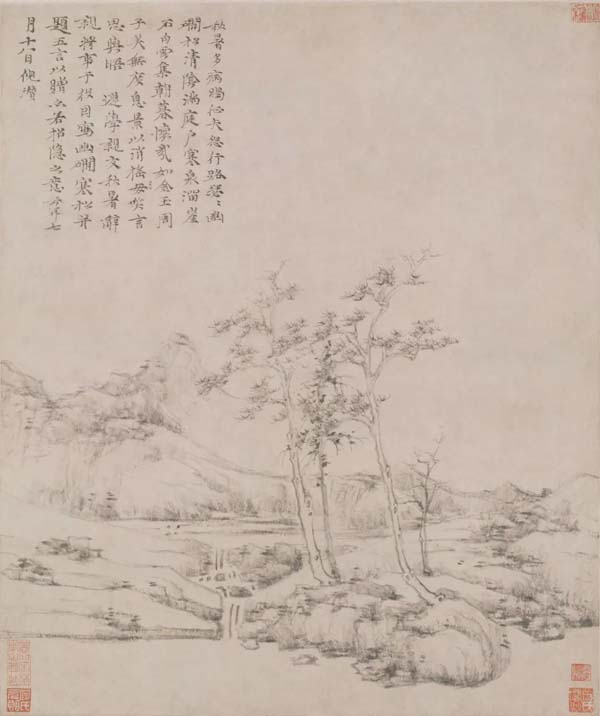 秋暑多病暍征夫怨行路瑟瑟幽
澗松清陰滿庭戶寒泉溜崖
石白雲集朝暮懷哉如金玉周
子美無度息景以消搖笑言
思與晤 遜學親友秋暑辭
親將事于役因寫幽澗寒松并
題五言以贈亦若招隱之意云耳七
月十八日倪瓚